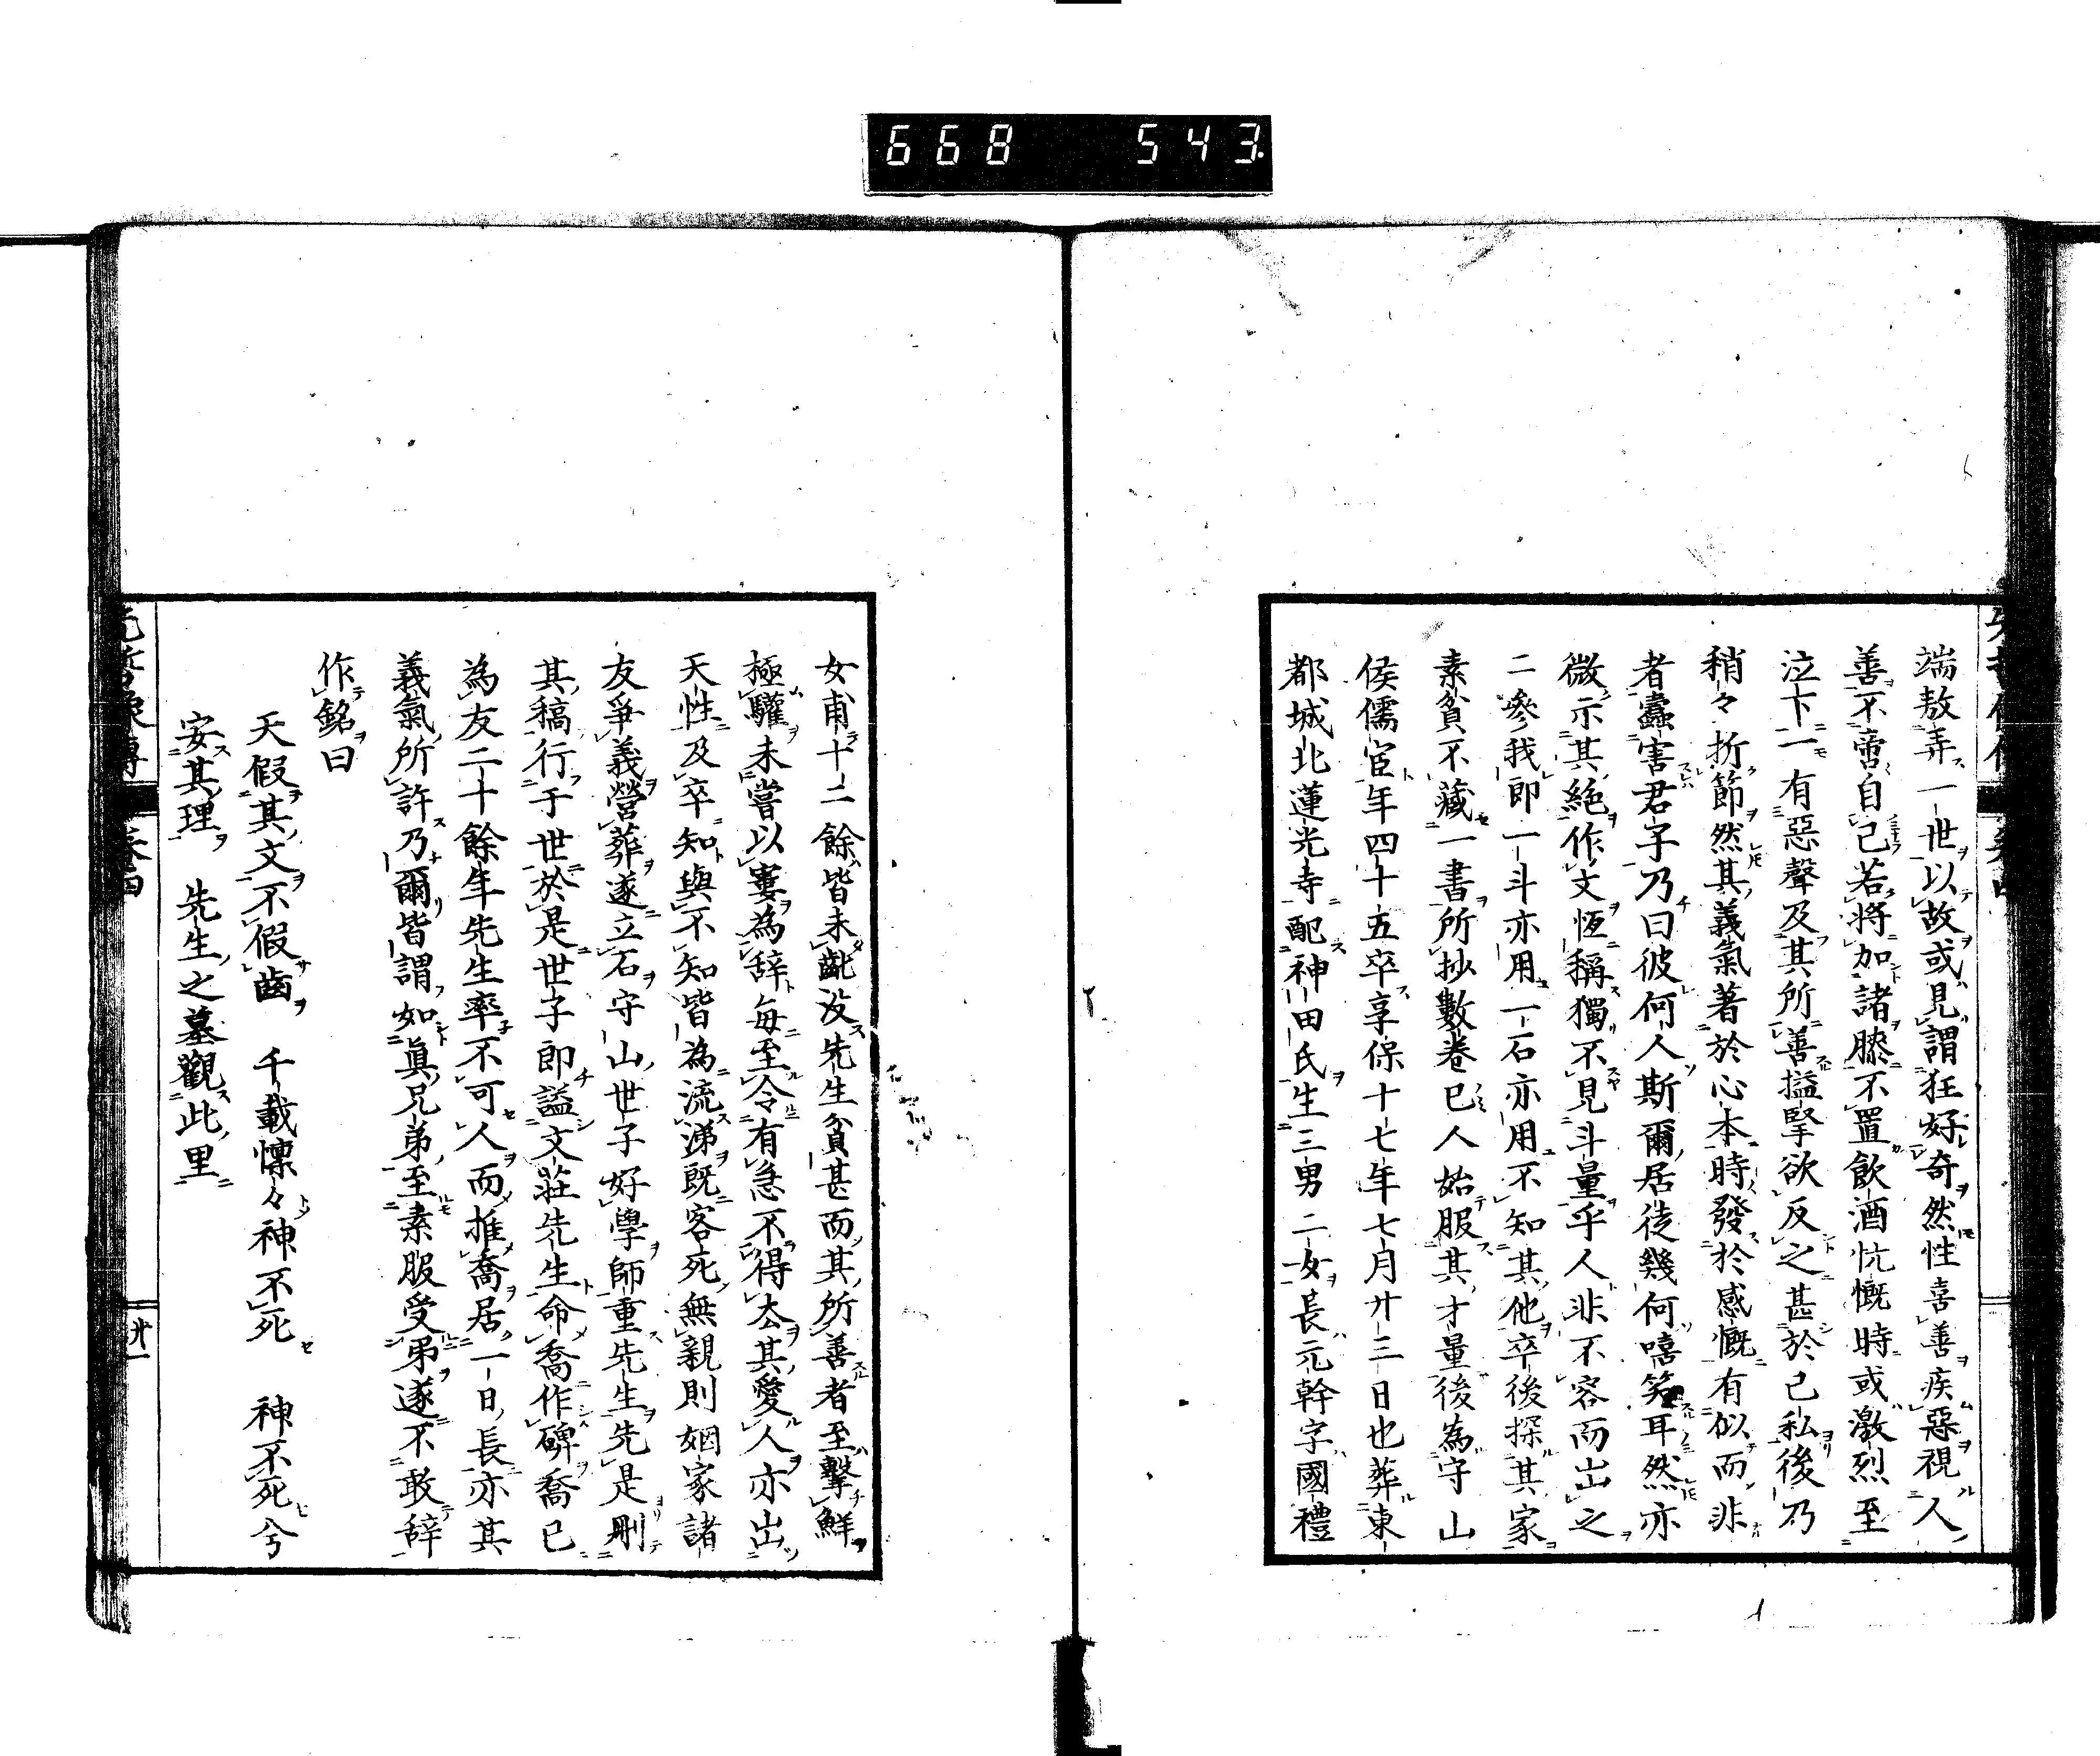 668 543
端敖弄一世以故或見謂狂好奇然性喜善疾惡視人
善不啻自己若將加諸膝不置飲酒忼慨時或激烈至
泣下一有惡聲及其所善搤掔欲反之甚於己私後乃
稍々折節然其義氣著於心本時發於感慨有似而非
者蠹害君子乃曰彼何人斯爾居徒幾何嘻笑耳然亦
微示其絶作文恆稱獨不見斗量乎人非不容而出之
二參我即一斗亦用一石亦用不知其他卒後探其家
素貧不藏一書所抄數卷已人始服其才量後為守山
侯儒宦年四十五卒享保十七年七月廿三日也葬東
都城北蓮光寺配神田氏生三男二女長元幹字國禮
女甫十二餘皆未齔沒先生貧甚而其所善者至擊鮮
極驩未嘗以寠為辭每至令有急不得太其愛人亦出
天性及卒知與不知皆為流涕既客死無親則姻家諸
友爭義營葬遂立石守山世子好學師重先生先是刪
其稿行于世於是世子即謚文莊先生命喬作碑喬已
為友二十餘年先生率不可人而推喬居一日長亦其
義氣所許乃爾皆謂如眞兄弟至素服受弔遂不敢辞
作銘曰
天假其文不假齒　千載懍々神不死　神不死兮
安其理　先生之墓觀此里
先哲像傳 卷四 廿一